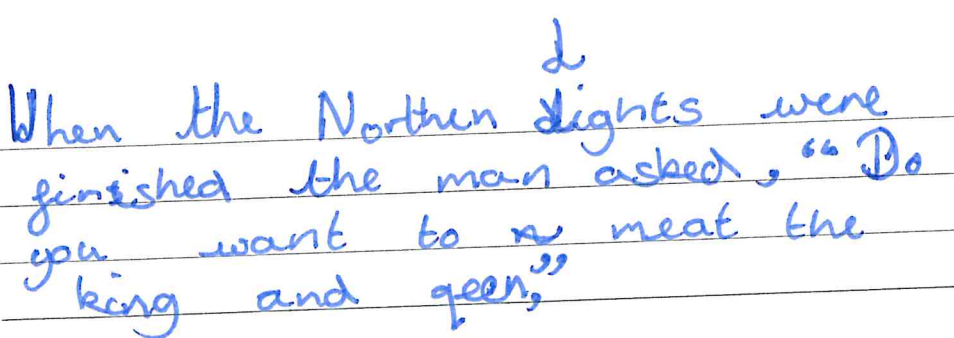 When the Northen Lights were
finished the man asked, “Do
you want to meat the
king and qeen,”